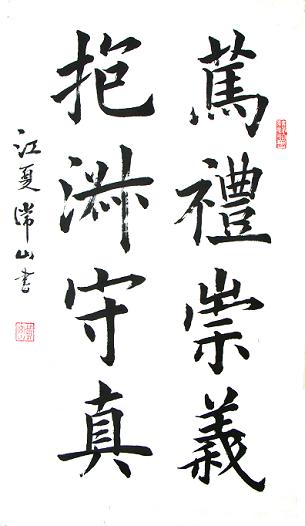 篤禮崇義
抱淑守真
江夏山書